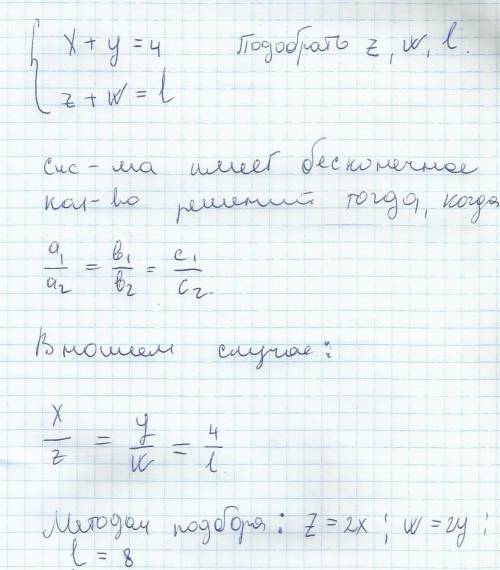 x + y = 4 Подобрать z, w, l.
z + w = l
Сис-ма имеет бесконечное
кол-во решений тогда, когда
a₁/a₂ = b₁/b₂ = c₁/c₂.
В нашем случае:
x/z = y/w = 4/l
Методом подбора: z = 2x; w = 2y;
l = 8